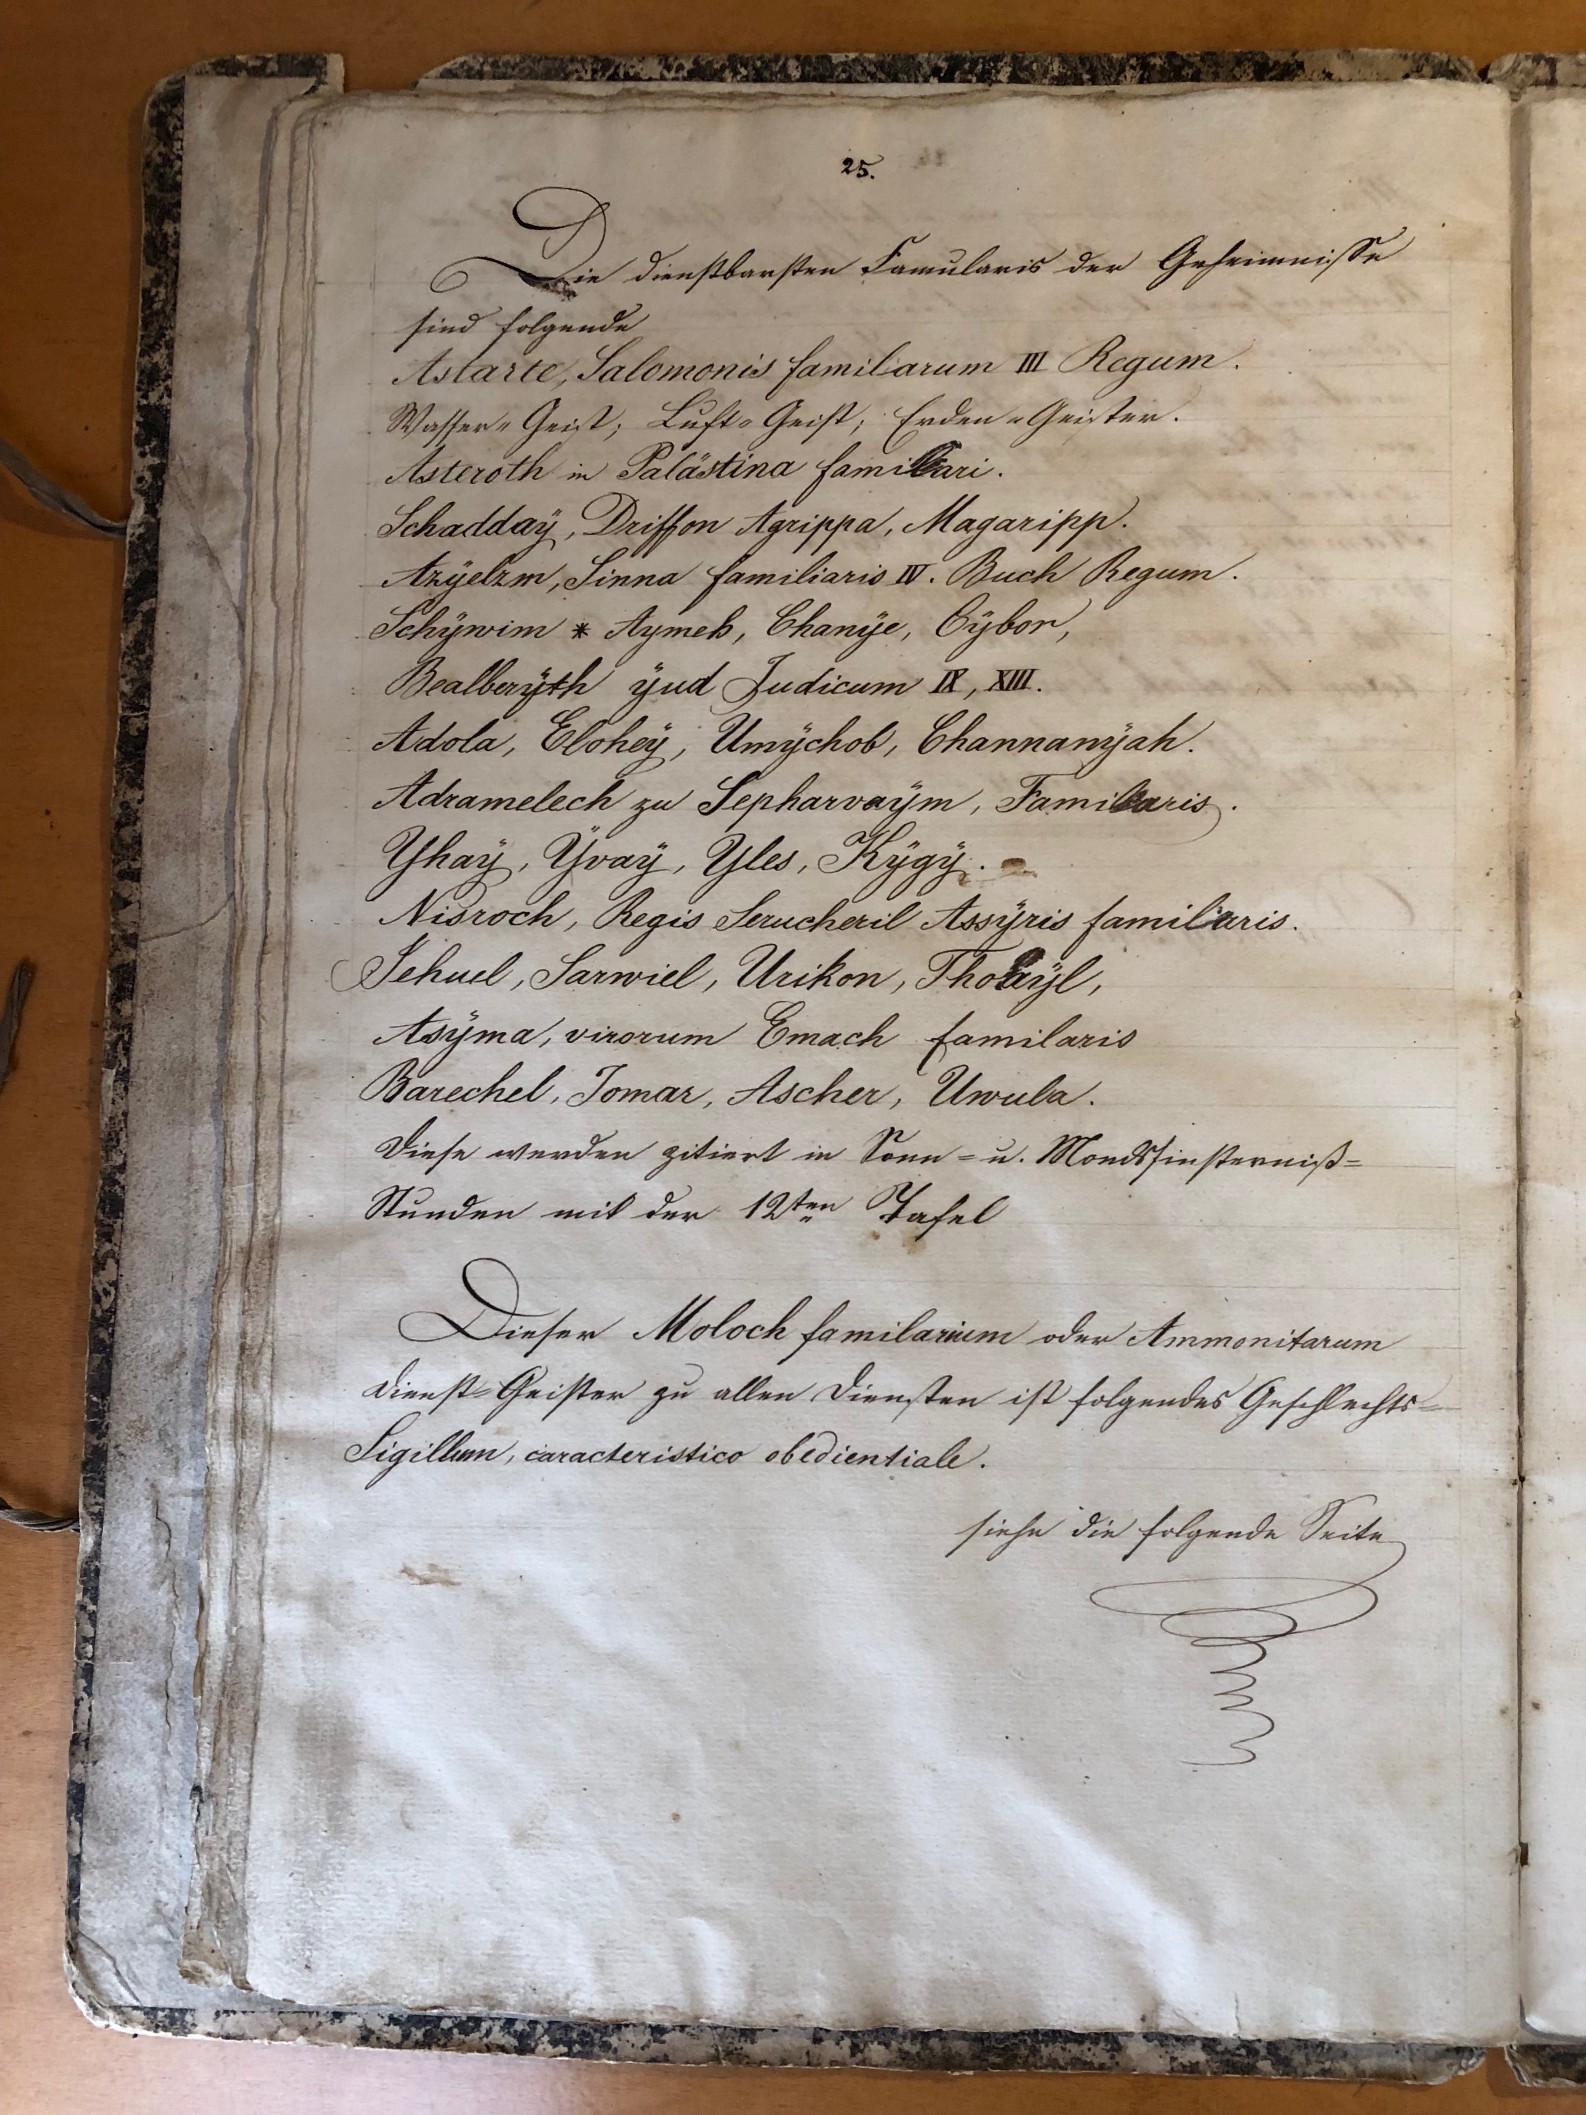 25.
Die dienstbarsten Famularis der Geheimnisse
sind folgende
Astarte, Salomonis familiarum III Regum.
Wasser=Geist; Luft=Geist; Erden=Geister.
Asteroth in Palästina familiari.
Schaddaÿ, Driffon Agrippa, Magaripp.
Azÿelzm, Sinna familiaris IV. Buch Regum.
Schÿwim * Aymeh, Chanÿe, Cÿbor,
Bealberÿth ÿud Judicum IX, XIII.
Adola, Eloheÿ, Umÿchob, Channanÿah.
Adramelech zu Sepharvaÿm, Familaris.
Yhaÿ, Ÿvaÿ, Yles, Kÿgÿ.
Nisroch, Regis Serucheril Assÿris familiaris.
Jehuel, Sarwiel, Urikon,
Asÿma, virorum Emach familaris
Barechel, Jomar, Ascher, Uwula.
Diese werden zitiert in Sonn= u. Mondsfinsterniß=
Stunden mit der 12ten Tafel
Dieser Moloch familarium oder Ammonitarum
Dienst=Geister zu allen Diensten ist folgendes Geschlechts=
Sigillum, caracteristico obedientiale.
siehe die folgende Seite